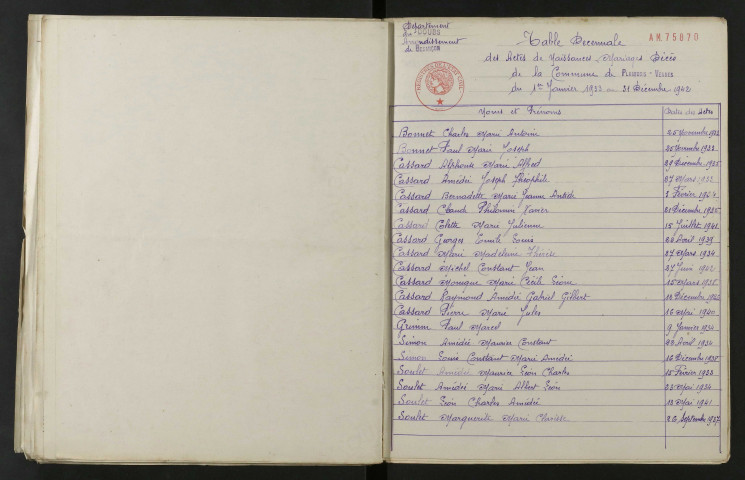 Département
du DOUBS
Arrondissement
de BESANÇON
AM.75870
Table Décennale
des Actes de Naissances, Mariages, Décès
de la Commune de
du 1er Janvier 1933 au 31 Décembre 1942
Noms et Prénoms Date des Actes
Bonnet Charles Marie Antoine 25 Novembre
Bonnet Paul Marie Joseph 25 Novembre 1933
Cassard Alphonse Marie Alfred 29 Décembre 1935
Cassard Amédée Joseph Théophile 27 Mars
Cassard Bernadette Marie Jeanne Février
Cassard Claude Philomin Xavier 21 Décembre 1935
Cassard Colette Marie Julienne 15 Juillet 1941
Cassard Georges Emile Louis 24 Avril 1939
Cassard Marie Madeleine Thérèse 27 Mars 1934
Cassard Michel Constant Jean 27 Juin
Cassard Monique Marie Cécile 15 Mars
Cassard Raymond Amédée Gabriel Gilbert Décembre
Cassard Pierre Marie Jules 16 Mai 1940
Grimm Paul Marcel 9 Janvier 1934
Simon Amédée Maurice Constant Avril 1934
Simon Louis Constant Marie Amédée Décembre
Soulet Amédée Maurice Léon Charles 15 Février 1933
Soulet Amédée Marie Albert Léon 23 Mai 1934
Soulet Léon Charles Amédée 13 Mai 1941
Soulet Marguerite Marie Septembre 1937